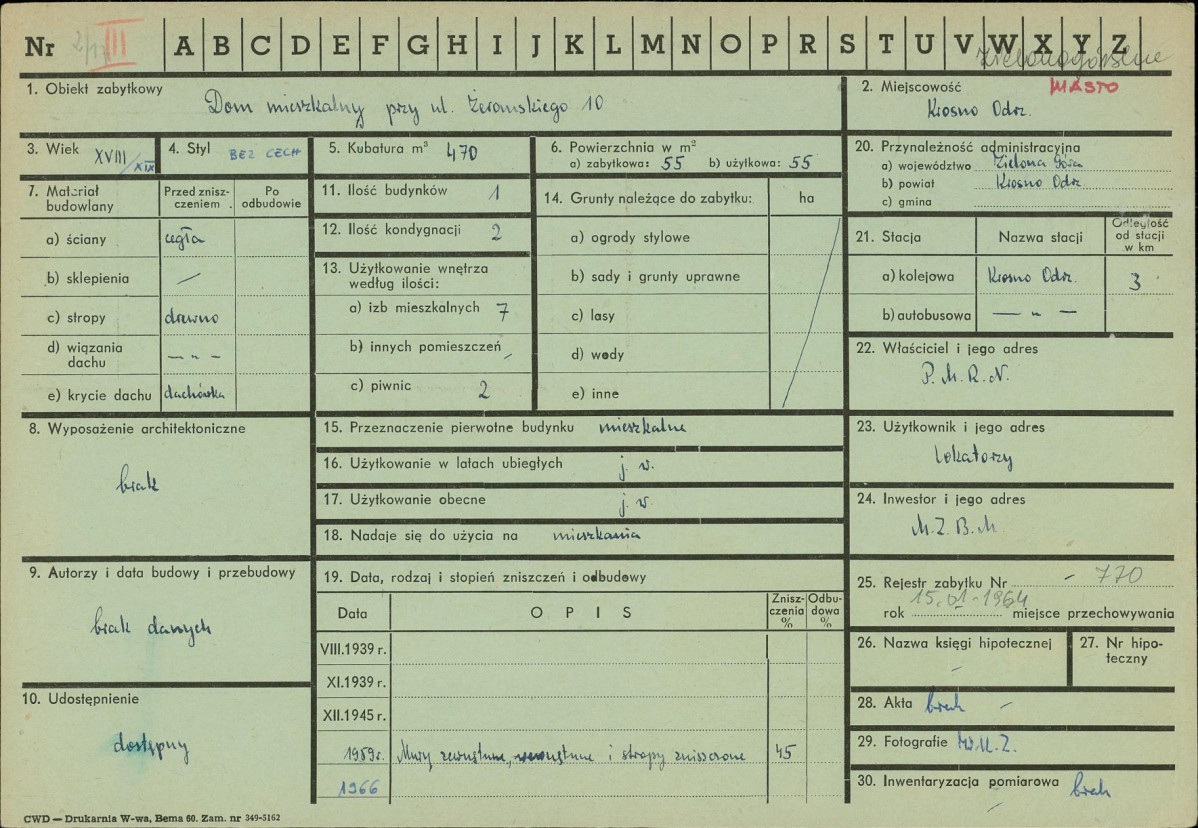 Nr 2/17 III A B C D E F G H I J K L M N O P R S T U V W X Y Z
Zielonogórskie
1. Obiekt zabytkowy
Dom mieszkalny przy ul. Żeromskiego 10
2. Miejscowość MIASTO
Krosno Odrz.
3. Wiek XVIII/XIX
4. Styl BEZ CECH
5. Kubatura m³ 470
6. Powierzchnia w m²
a) zabytkowa: 55 b) użytkowa: 55
20. Przynależność administracyjna
a) województwo Zielona Góra
b) powiat Krosno Odrz
c) gmina
7. Materiał budowlany
Przed zniszczeniem
Po odbudowie
a) ściany cegła
b) sklepienia —
c) stropy drewno
d) wiązania dachu — „ —
e) krycie dachu dachówka
11. Ilość budynków 1
12. Ilość kondygnacji 2
13. Użytkowanie wnętrza
według ilości:
a) izb mieszkalnych 7
b) innych pomieszczeń -
c) piwnic 2
14. Grunty należące do zabytku: ha
a) ogrody stylowe
b) sady i grunty uprawne
c) lasy
d) wody
e) inne
21. Stacja
Nazwa stacji
Odległość od stacji w km
a) kolejowa Krosno Odrz. 3
b) autobusowa — „ —
22. Właściciel i jego adres
P. M. R. N.
8. Wyposażenie architektoniczne
brak
15. Przeznaczenie pierwotne budynku mieszkalne
16. Użytkowanie w latach ubiegłych j. w.
17. Użytkowanie obecne j. w.
18. Nadaje się do użycia na mieszkania
23. Użytkownik i jego adres
lokatorzy
24. Inwestor i jego adres
M. Z. B. M
9. Autorzy i data budowy i przebudowy
brak danych
19. Data, rodzaj i stopień zniszczeń i odbudowy
Data
O P I S
Zniszczenia %
Odbudowa %
VIII.1939 r.
XI.1939 r.
XII.1945 r.
1959r. Mury zewnętrzne, wewnętrzne i stropy zniszczone 45
1966
25. Rejestr zabytku Nr - 770
15.01-1964
rok miejsce przechowywania
26. Nazwa księgi hipotecznej
-
27. Nr hipoteczny
10. Udostępnienie
dostępny
28. Akta brak -
29. Fotografie W.K.Z.
30. Inwentaryzacja pomiarowa brak
-
CWD — Drukarnia W-wa, Bema 60. Zam. nr 349-5162